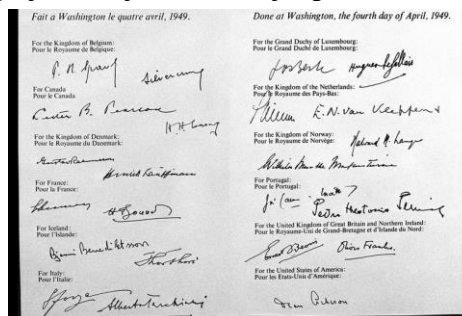 Fait a Washington le quatre avril, 1949.
For the Kingdom of Belgium:
Pour le Royaume de Belgique:
P. H. Spaak Silvercruys
For Canada
Pour le Canada
Lester B. Pearson
H H Wrong
For the Kingdom of Denmark:
Pour le Royaume du Danemark:
Gustav Rasmussen
Henrik Kauffmann
For France:
Pour la France:
Schuman H Bonnet
For Iceland:
Pour l'Islande:
Bjarni Benediktsson
Thor Thors
For Italy:
Pour l'Italie:
Sforza Alberto Tarchiani
Done at Washington, the fourth day of April, 1949.
For the Grand Duchy of Luxembourg:
Pour le Grand Duché de Luxembourg:
Jos Bech Hugues Le Gallais
For the Kingdom of the Netherlands:
Pour le Royaume des Pays-Bas:
Stikker E. N. van Kleffens
For the Kingdom of Norway:
Pour le Royaume de Norvège:
Halvard M. Lange
Wilhelm Munthe Morgenstierne
For Portugal:
Pour le Portugal:
José Caeiro da Matta
Pedro Theotonio Pereira
For the United Kingdom of Great Britain and Northern Ireland:
Pour le Royaume-Uni de Grande-Bretagne et d'Irlande du Nord:
Ernest Bevin Oliver Franks.
For the United States of America:
Pour les Etats-Unis d'Amérique:
Dean Acheson